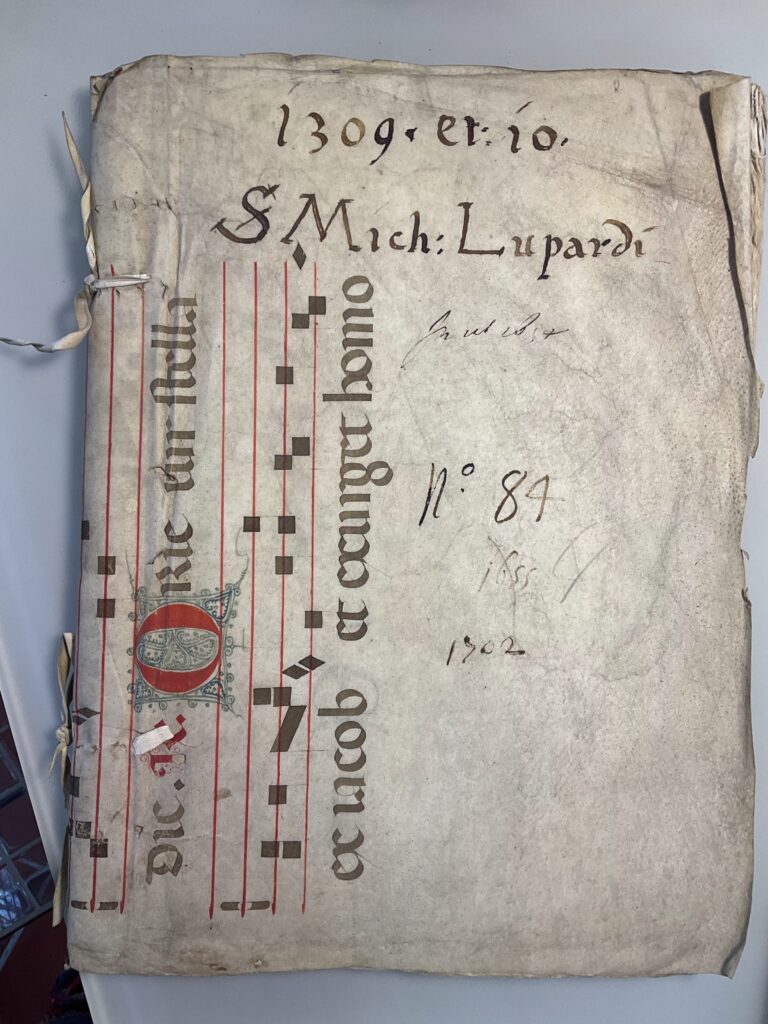 1309. et: io.
S Mich: Lupardi
N° 84
1702
Dic. ℟. ORie tur stella
ex iacob et exurget homo